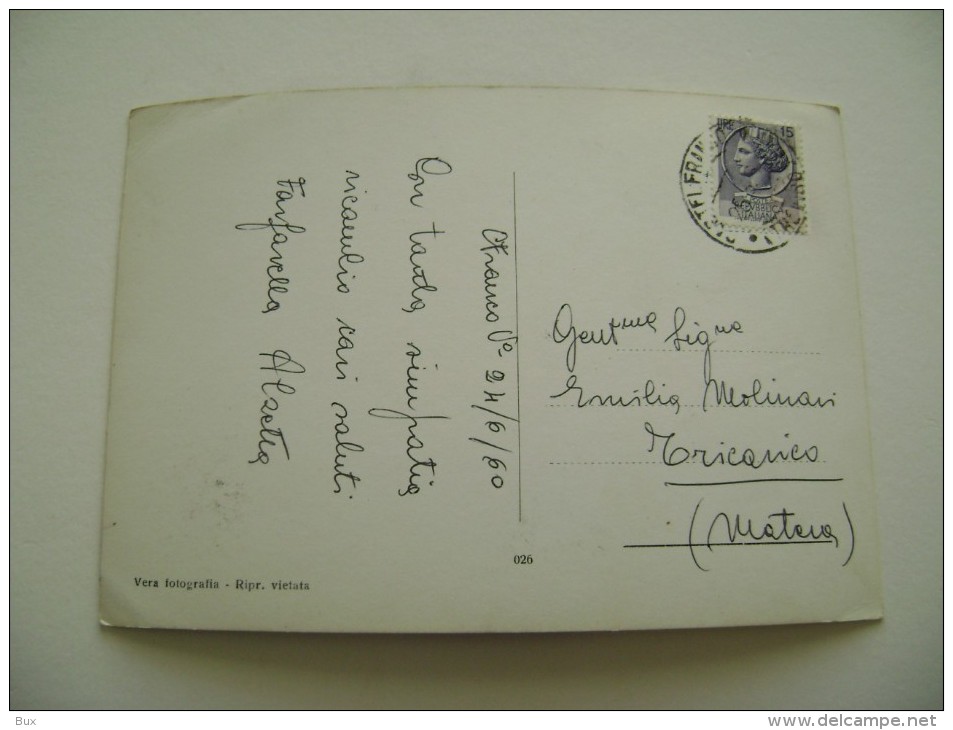 C/Franco Vº 24/6/60
Con tanta simpatia
ricambio cari saluti
Farfarella Alzetta
LIRE 15
REPUBBLICA
ITALIANA
CASTELFRAN
Gent.ma Sig.na
Emilia Molinari
Tricarico
(Matera)
026
Vera fotografia - Ripr. vietata
Bux
www.delcampe.net